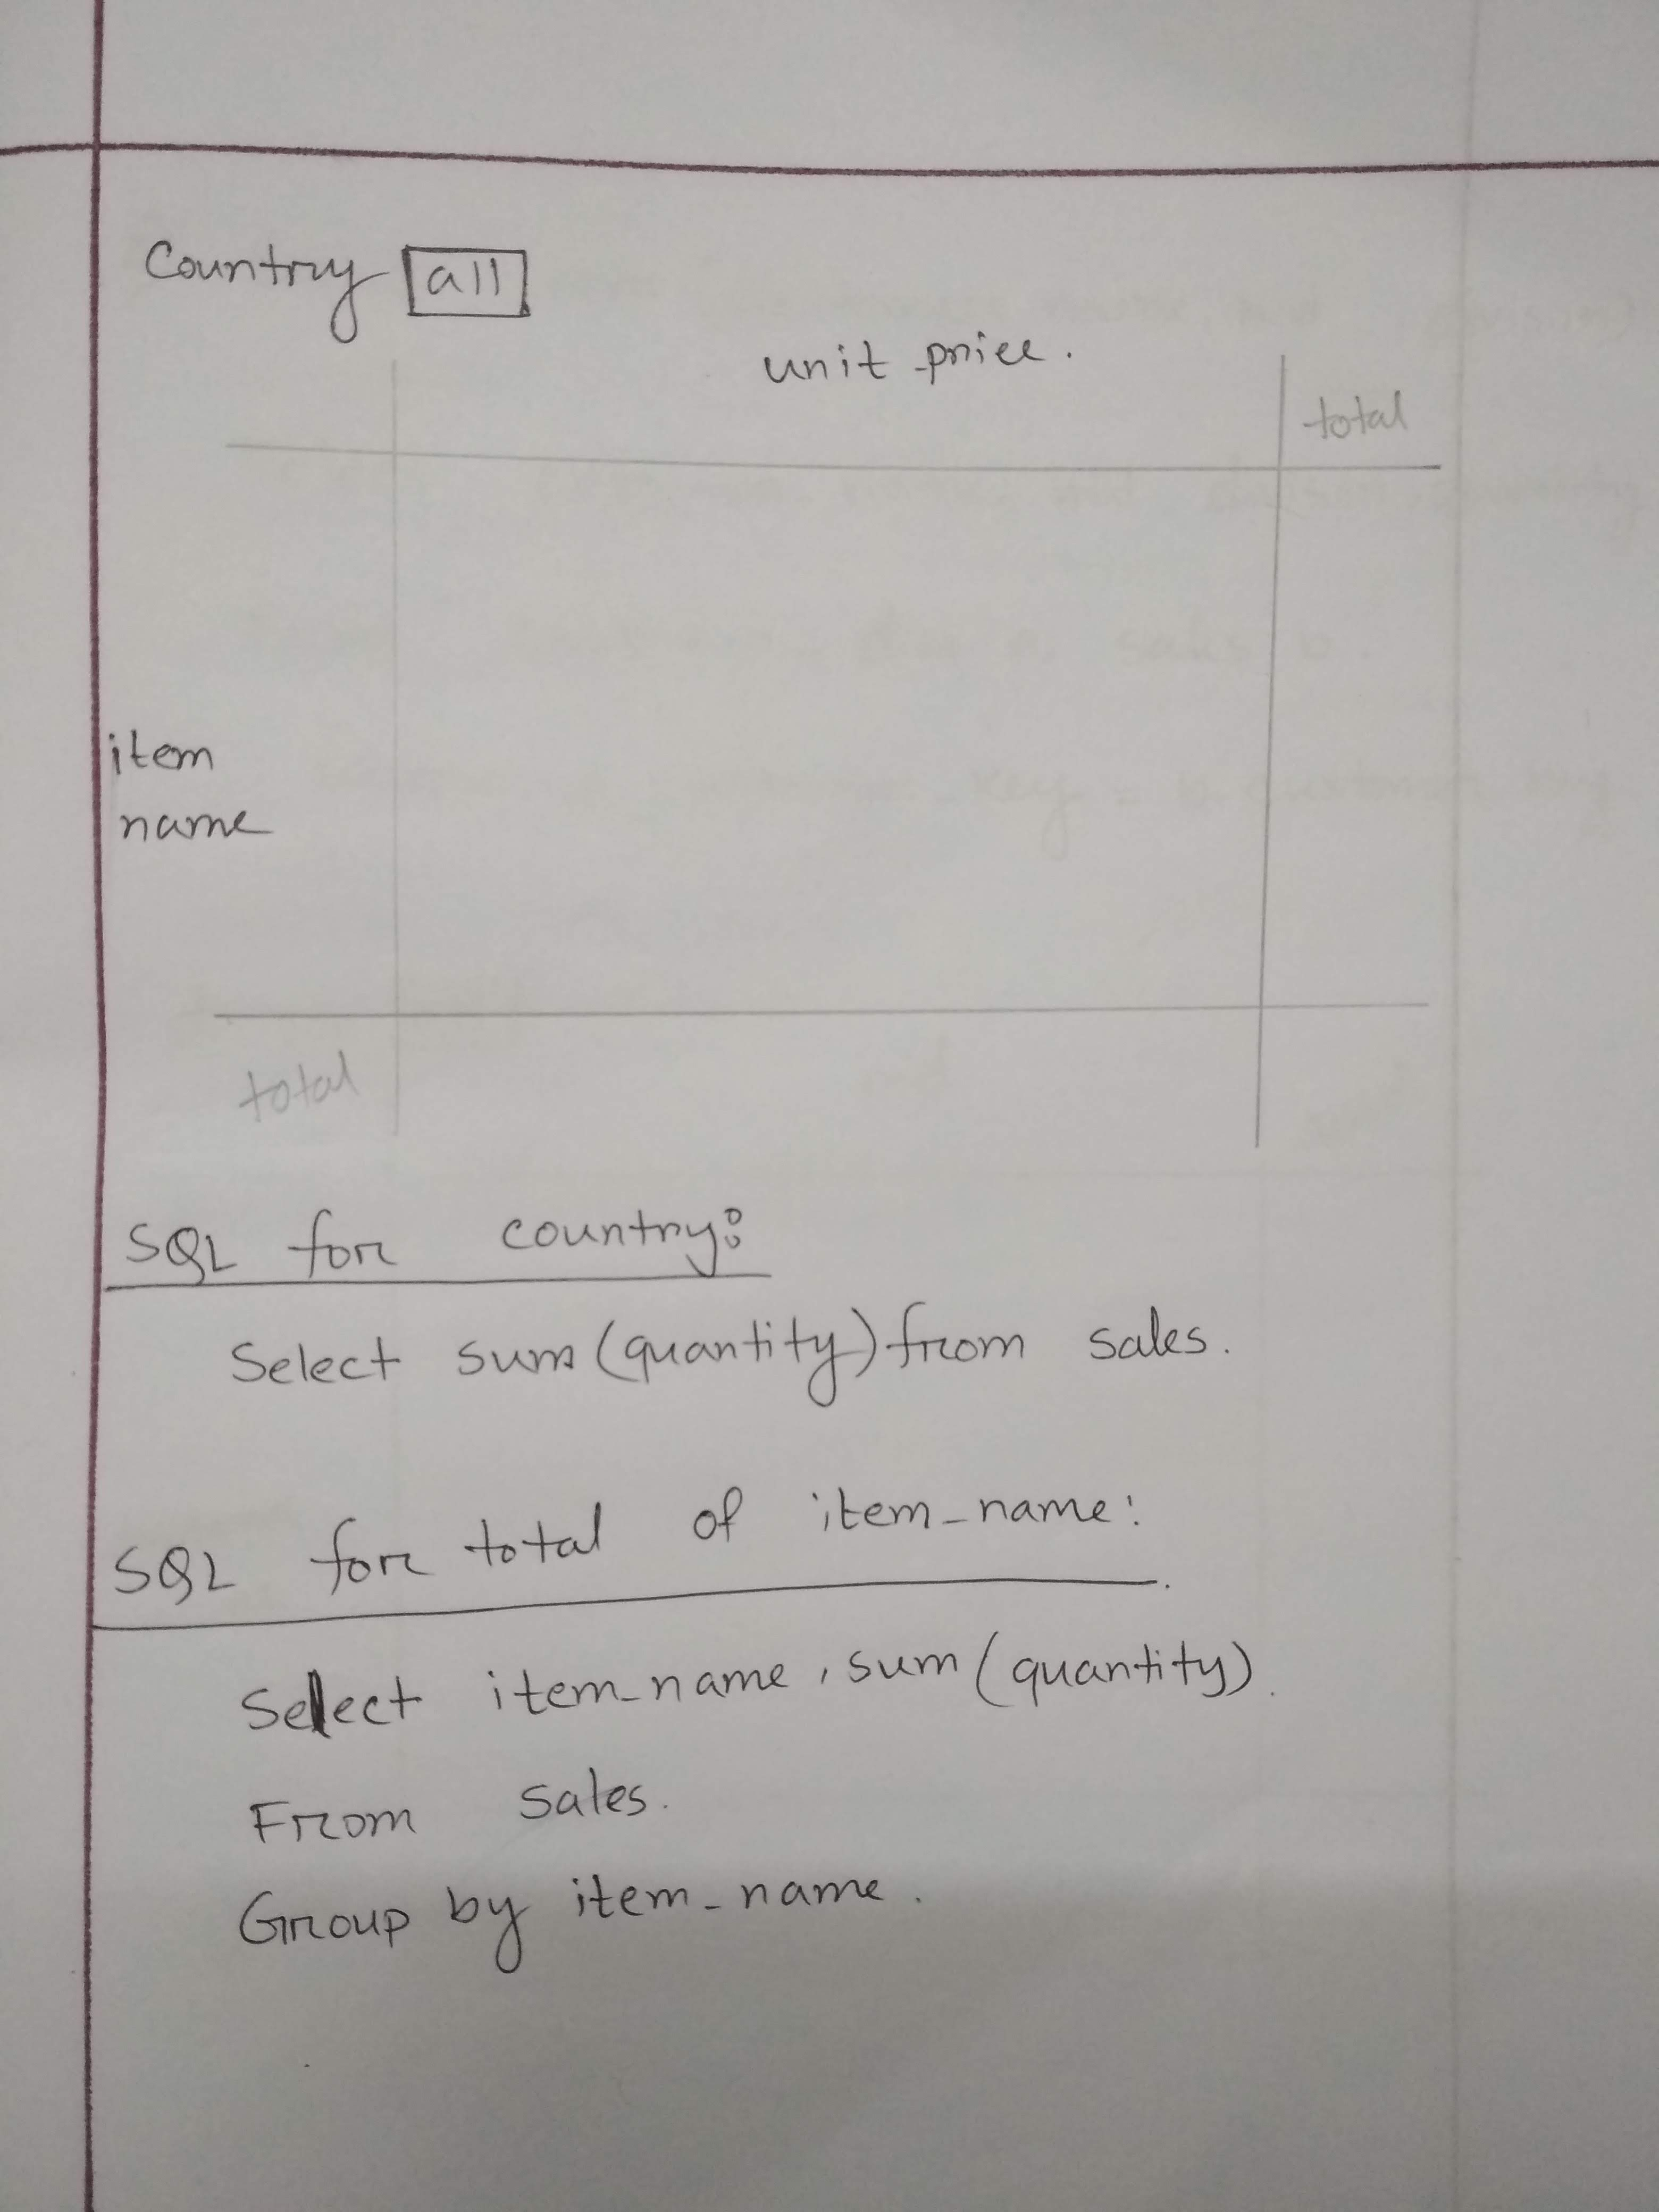 Country all
unit price.
total
item
name
total
SQL for country:
Select sum (quantity) from sales.
SQL for total of item_name:
Select item_name, sum (quantity).
From sales.
Group by item_name.